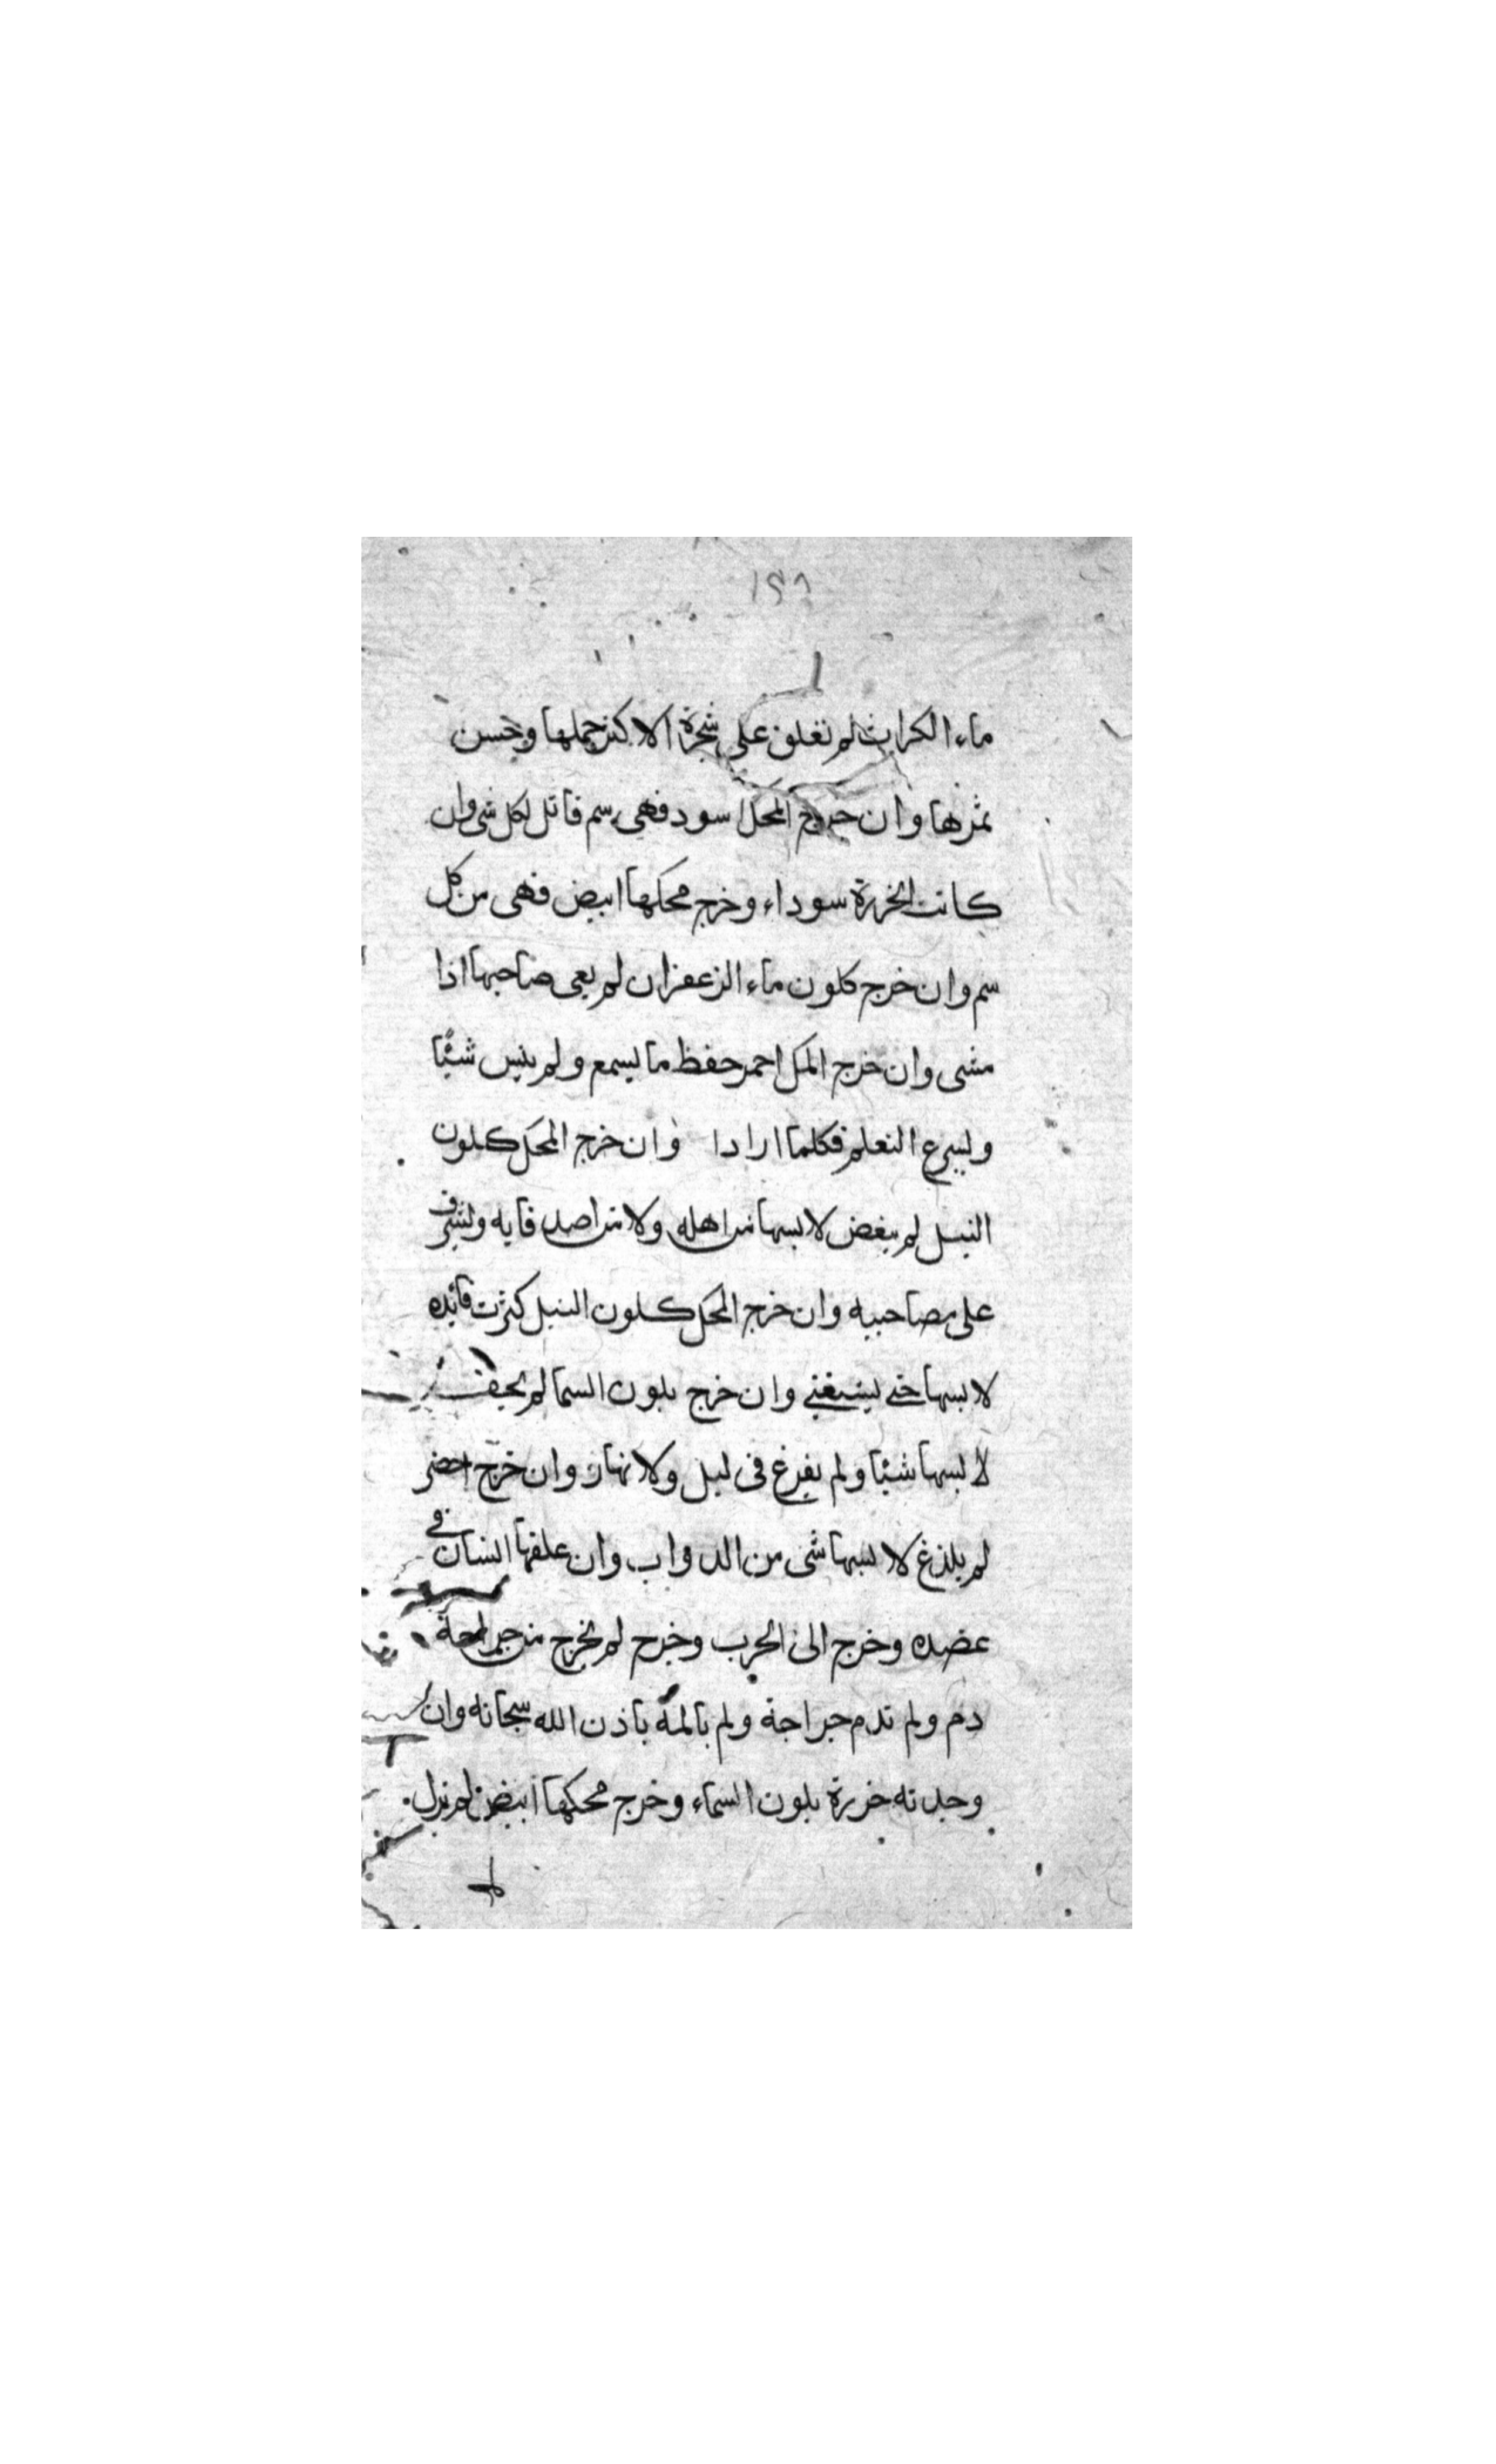 ١٤٦
ماء الكراث لم تعلق على شجرة الا كثر حملها وحسن
ثمرها وان خرج المحك اسود فهي سم قاتل لكل شى وان
كانت الخرزة سوداء وخرج محكها ابيض فهى من كل
سم وان خرج كلون ماء الزعفران لم يعى صاحبها اذا
مشى وان خرج المحك احمر حفظ ما يسمع ولم ينس شيئا
ويسرع التعلم فكلما ارادا وان خرج المحك كلون
النيل لم يبغض لابسها من اهله ولا من اصدقايه ويشرف
على صاحبيه وان خرج المحك كلون النيل كثرت فائده
لابسها حتى يستغنى وان خرج بلون السما لم يخف
لابسها شيئا ولم يفزع فى ليل ولا نهار وان خرج اخضر
لم يلدغ لابسها شى من الدواب وان علقها انسان في
عضده وخرج الى الحرب وجرح لم يخرج من جراحة
دم ولم تدم جراحة ولم يالمه باذن الله سبحانه وان
وجدته خرزة بلون السماء وخرج محكها ابيض لم نزل